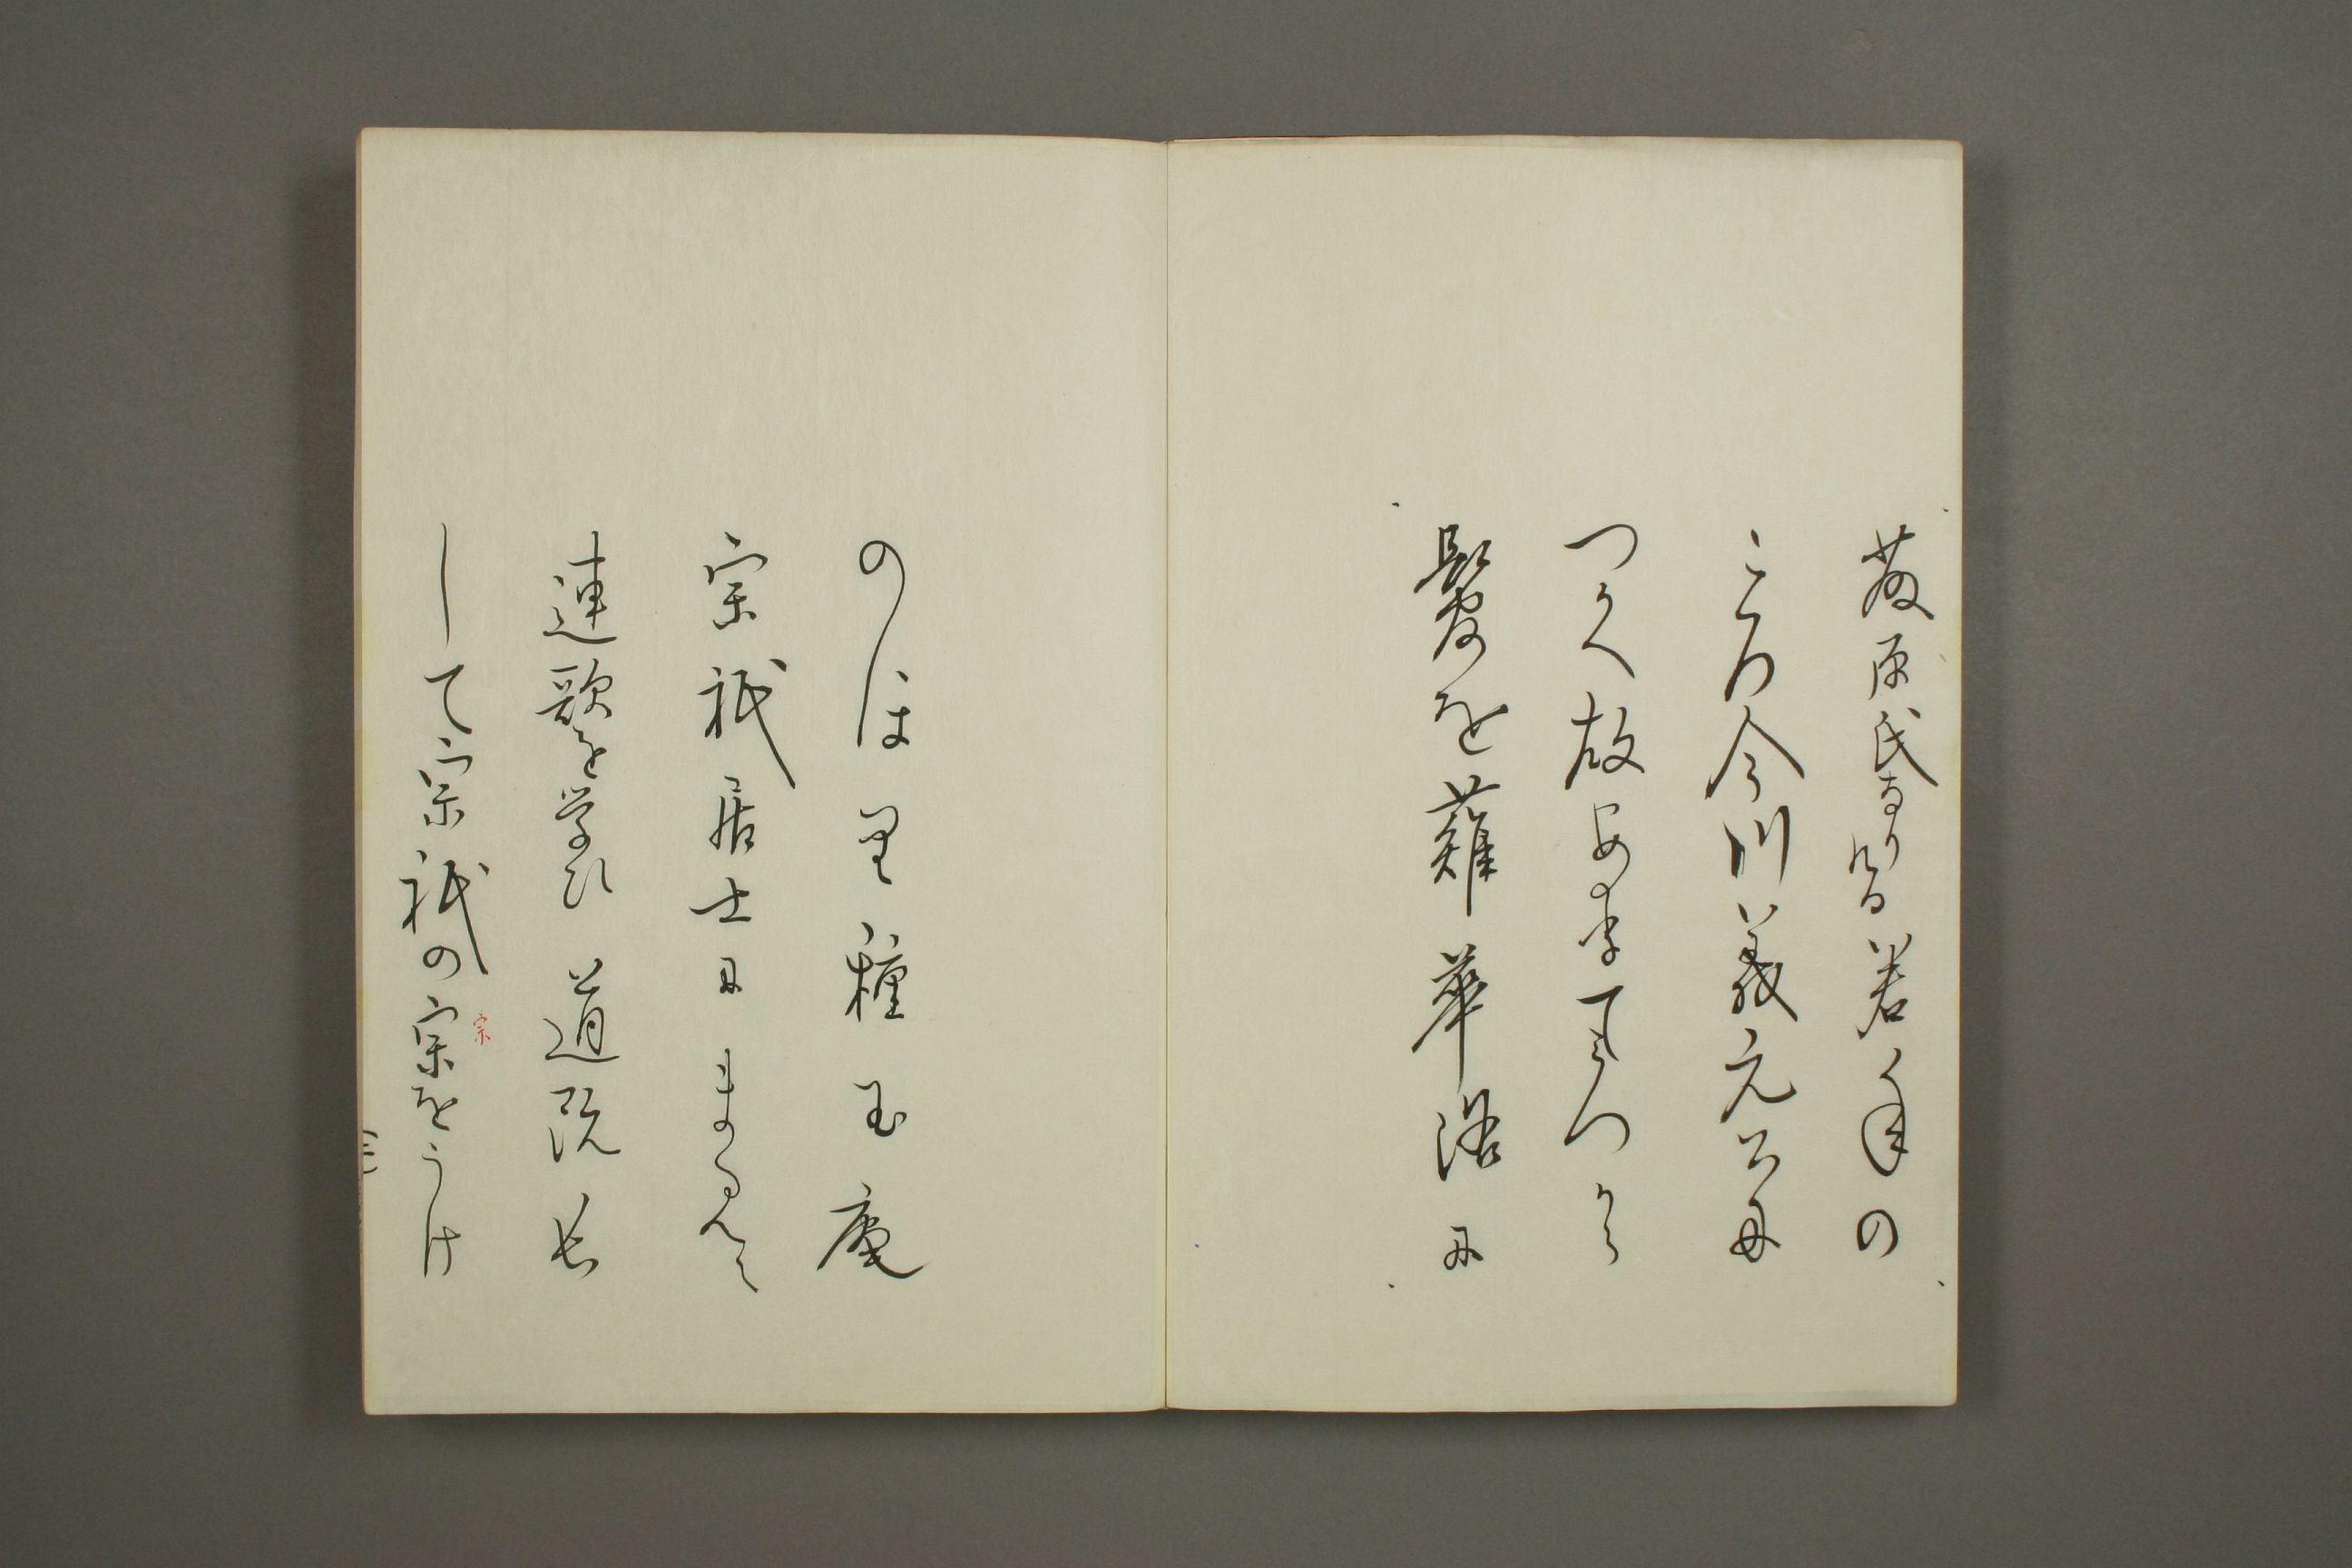 藤原氏なりける若年の
ころ今川義元公に
つかへ故ありてみつから
髪を薙華洛に
のほり種玉庵
宗祇居士にまみえ
連歌を学ひ道既長
して宗祇の宗をうけ
宗